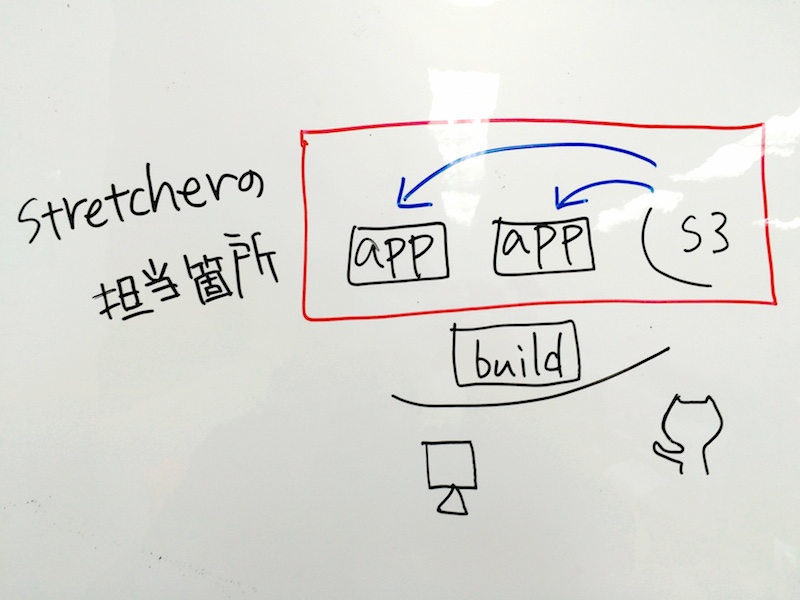 Stretcherの
担当箇所
app
app
S3
build